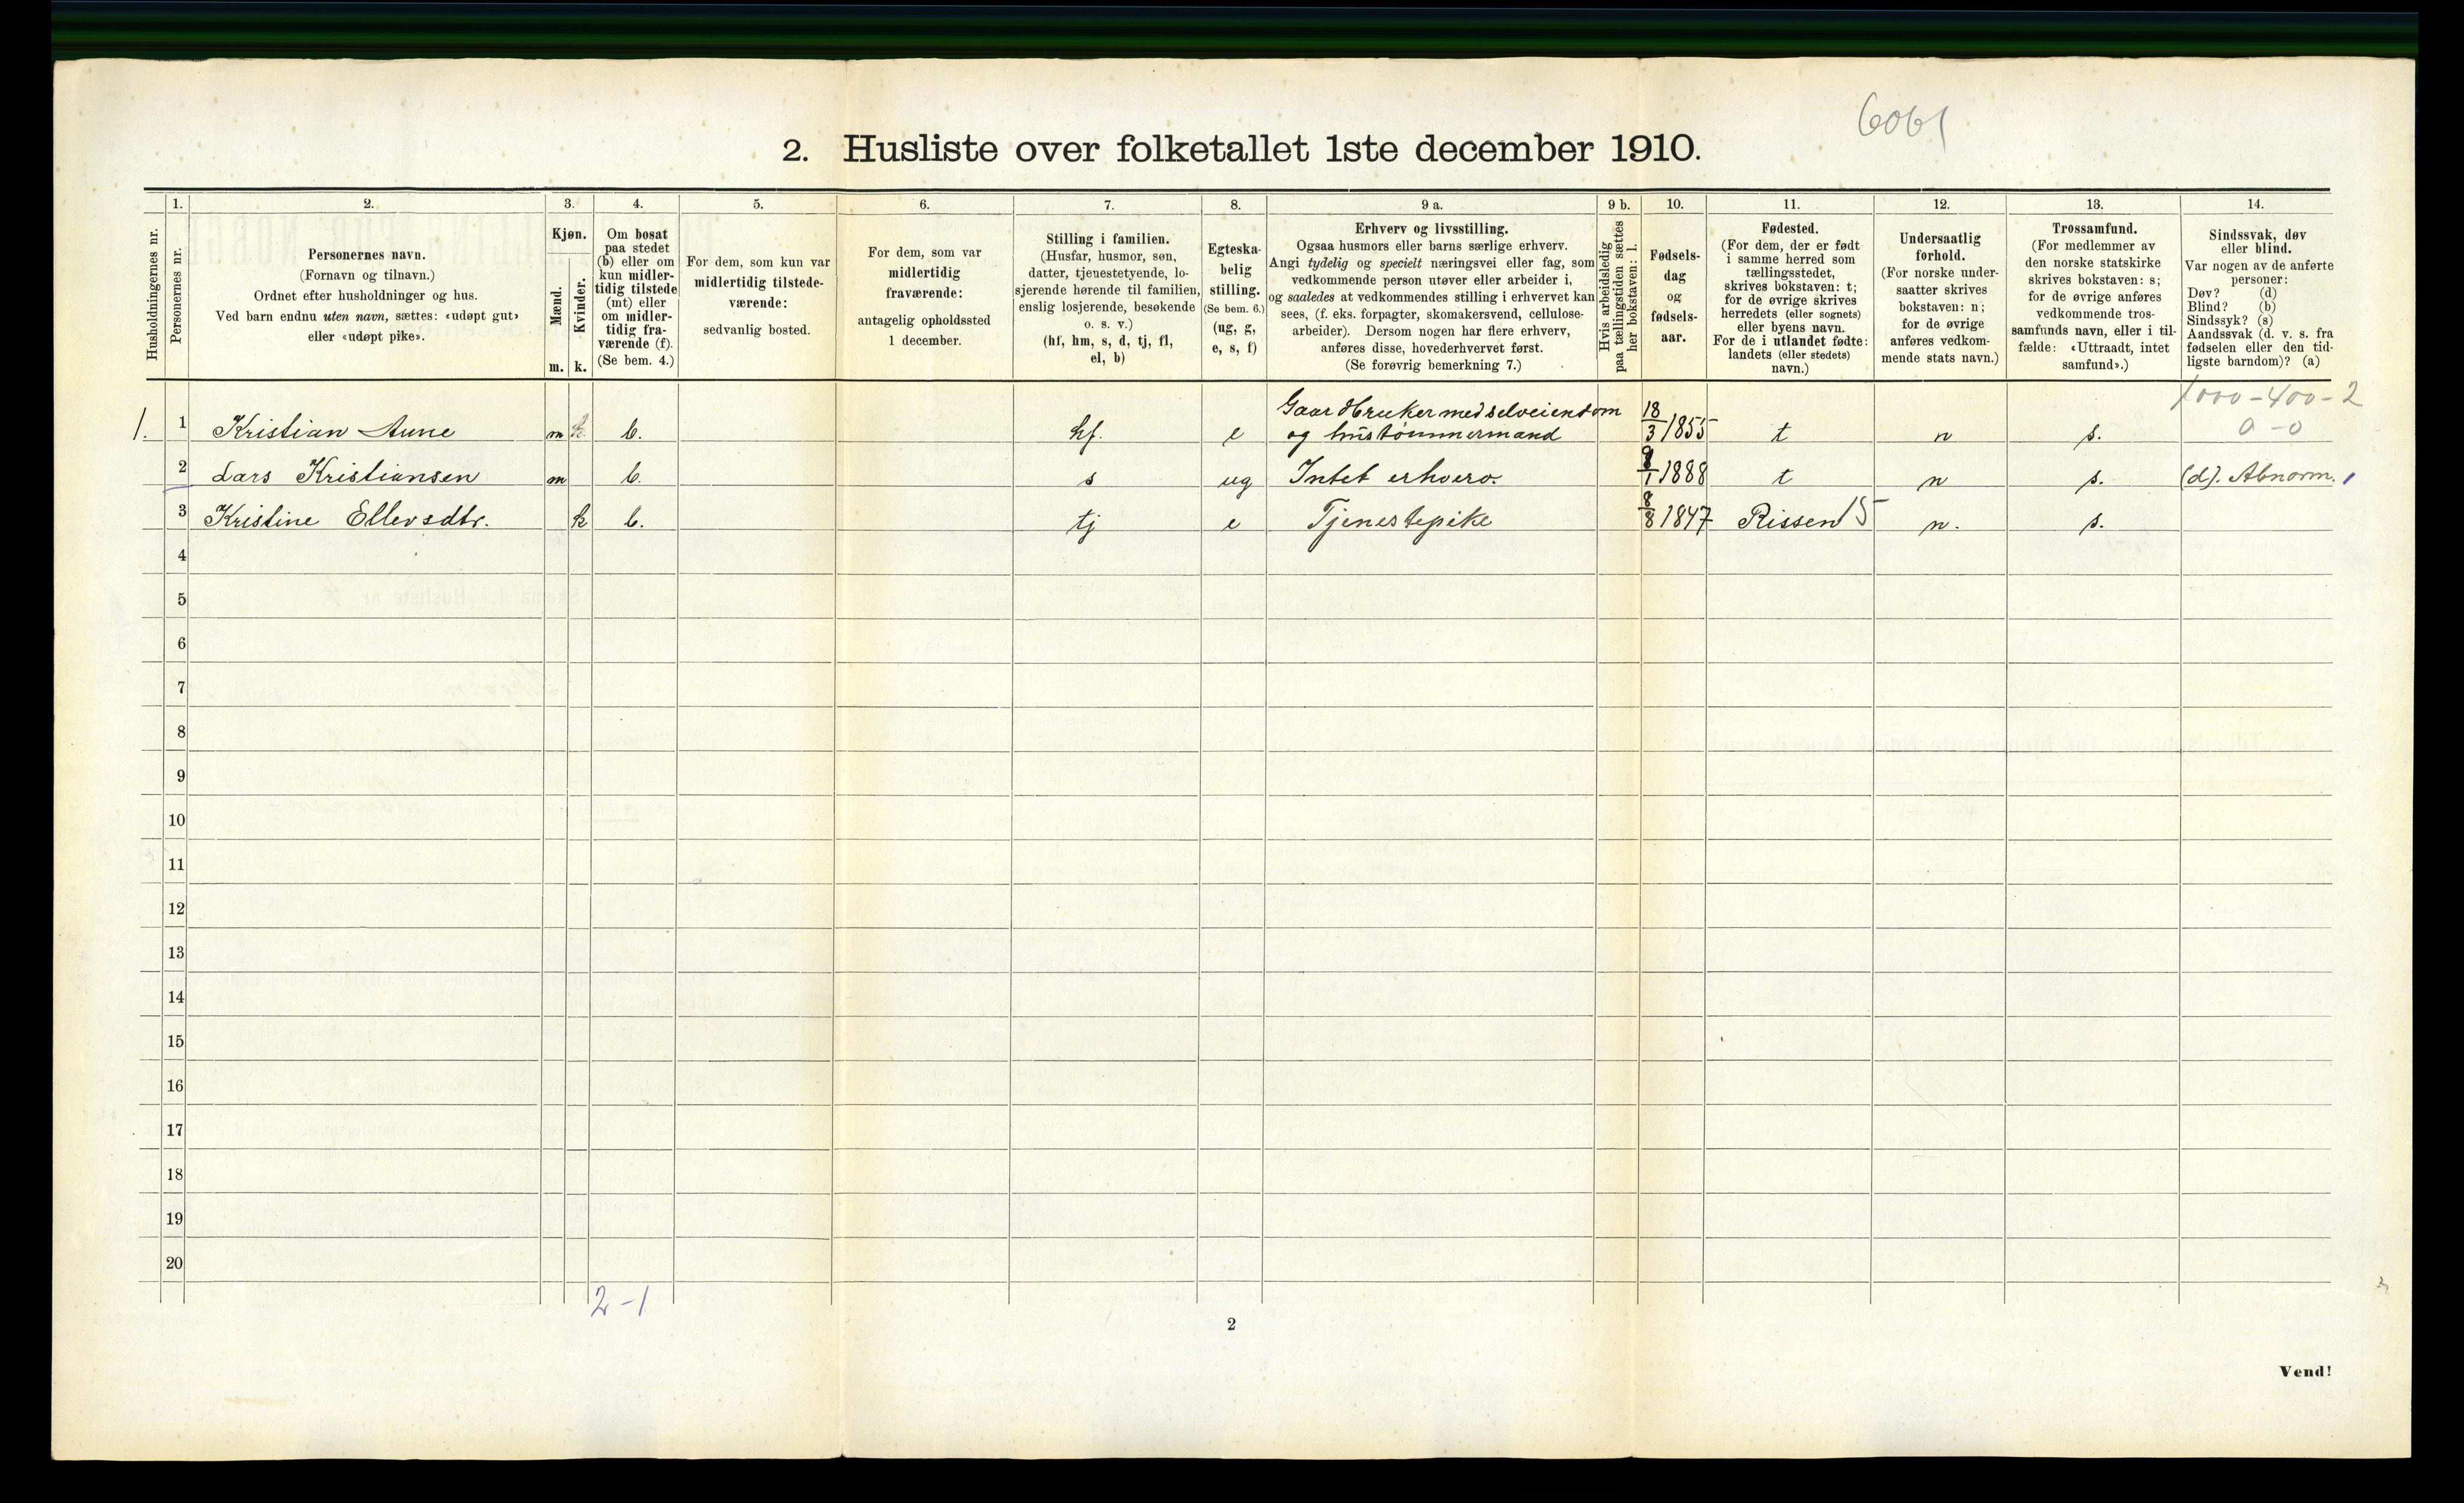 6061
2. Husliste over folketallet 1ste december 1910.
1. 2. 3. 4. 5. 6. 7. 8. 9 a. 9 b. 10. 11. 12. 13. 14.
Husholdningernes nr.
Personernes nr.
Personernes navn.
(Fornavn og tilnavn.)
Ordnet efter husholdninger og hus.
Ved barn endnu uten navn, sættes: «udøpt gut»
eller «udøpt pike».
Kjøn.
Mænd.
Kvinder.
m. k.
Om bosat
paa stedet
(b) eller om
kun midler-
tidig tilstede
(mt) eller
om midler-
tidig fra-
værende (f).
(Se bem. 4.)
For dem, som kun var
midlertidig tilstede-
værende:
sedvanlig bosted.
For dem, som var
midlertidig
fraværende:
antagelig opholdssted
1 december.
Stilling i familien.
(Husfar, husmor, søn,
datter, tjenestetyende, lo-
sjerende hørende til familien,
enslig losjerende, besøkende
o. s. v.)
(hf, hm, s, d, tj, fl,
el, b)
Egteska-
belig
stilling.
(Se bem. 6.)
(ug, g,
e, s, f)
Erhverv og livsstilling.
Ogsaa husmors eller barns særlige erhverv.
Angi tydelig og specielt næringsvei eller fag, som
vedkommende person utøver eller arbeider i,
og saaledes at vedkommendes stilling i erhvervet kan
sees, (f. eks. forpagter, skomakersvend, cellulose-
arbeider). Dersom nogen har flere erhverv,
anføres disse, hovederhvervet først.
(Se forøvrig bemerkning 7.)
Hvis arbeidsledig
paa tællingstiden sættes
her bokstaven: l.
Fødsels-
dag
og
fødsels-
aar.
Fødested.
(For dem, der er født
i samme herred som
tællingsstedet,
skrives bokstaven: t;
for de øvrige skrives
herredets (eller sognets)
eller byens navn.
For de i utlandet fødte:
landets (eller stedets)
navn.)
Undersaatlig
forhold.
(For norske under-
saatter skrives
bokstaven: n;
for de øvrige
anføres vedkom-
mende stats navn.)
Trossamfund.
(For medlemmer av
den norske statskirke
skrives bokstaven: s;
for de øvrige anføres
vedkommende tros-
samfunds navn, eller i til-
fælde: «Uttraadt, intet
samfund».)
Sindssvak, døv
eller blind.
Var nogen av de anførte
personer:
Døv? (d)
Blind? (b)
Sindssyk? (s)
Aandssvak (d. v. s. fra
fødselen eller den tid-
ligste barndom)? (a)
1000-400-2
0-0
1. 1 Kristian Aune m k b. hf. e Gaardbruker med selveiendom
og hustømmermand 18/3 1855 t n s.
2 Lars Kristiansen m b. s ug Intet erhverv. /1 1888 t n s. (d). Abnorm.
3 Kristine Ellevsdtr. k b. tj e Tjenestepike 8/8 1847 Rissen 15 n. s.
4
5
6
7
8
9
10
11
12
13
14
15
16
17
18
19
20
2-1
2
Vend!